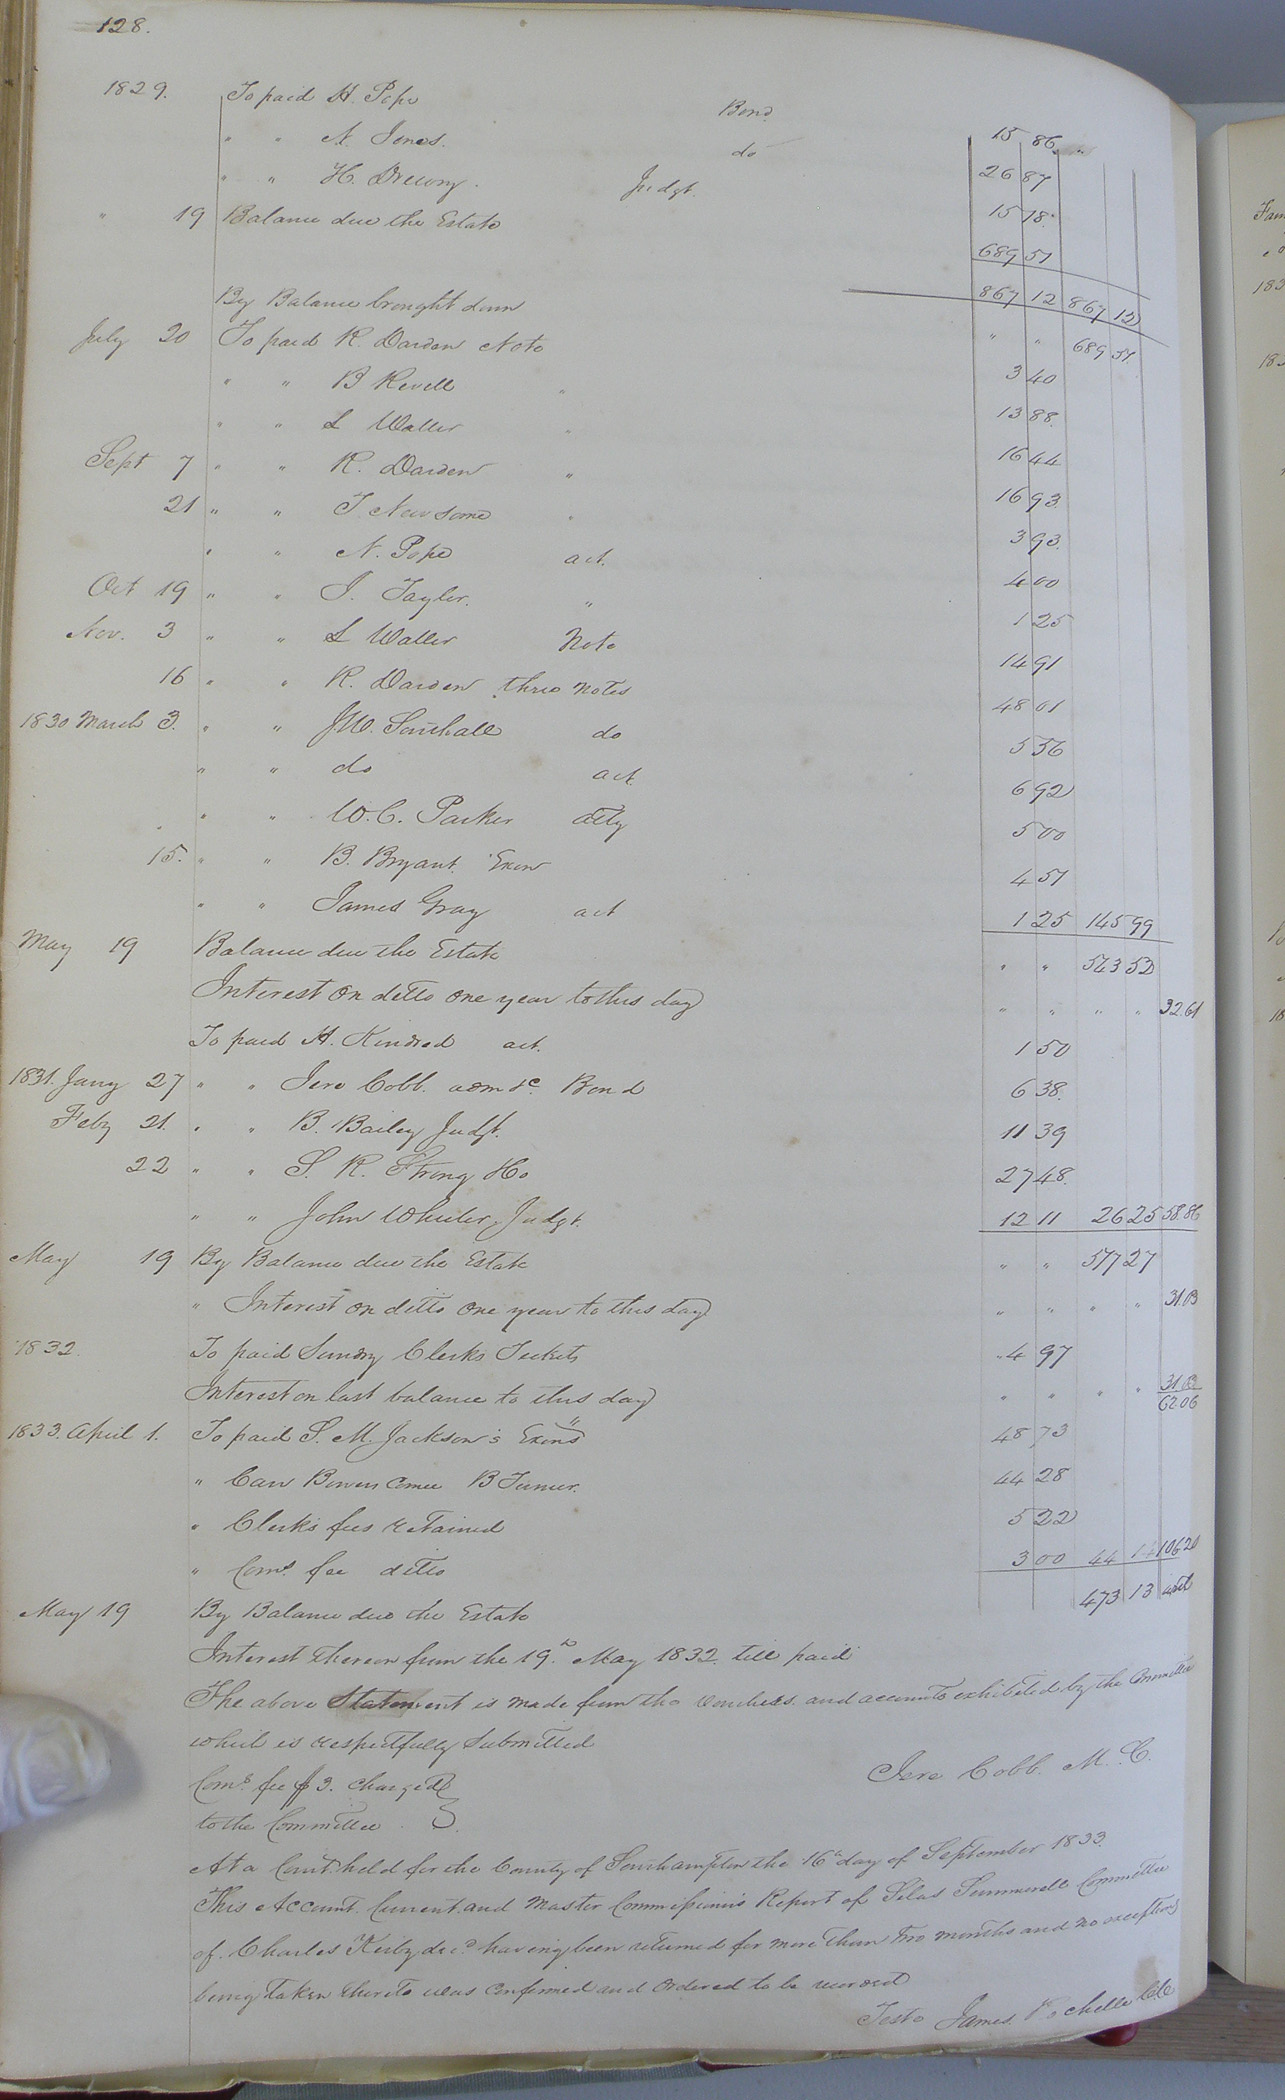 128.
1829. To paid H. Pope Bond 15 86
" " N. Jones. do 26 87
" " H. Drewry. Judgt. 15 18.
" 19 Balance due the Estate 689 51
867 12 867 12
By Balance brought down " " 689 51.
July 20 To paid R. Darden Note 3 40
" " B Revell " 13 88.
" " L Waller " 16 44
Sept 7 " " R. Darden " 16 93.
21 " " T Newsome " 3 93.
" " N. Pope act. 4 00
Oct 19 " " J. Taylor. " 1 25
Nov. 3 " " L Waller Note 14 91
16 " " R. Darden three notes 48 01
1830 March 3. " " J W. Southall do 5 56
" " do act. 6 92
" " W. C. Parker atty 5 00
15. " " B. Bryant. Exor 4 51
" " James Gray act 1 25 145 99
May 19 Balance due the Estate " " 543 52
Interest on ditto one year to this day " " " " 32.61
To paid H. Kindred act. 1 50
1831. Jany 27 " " Jere Cobb. adm &c. Bond 6 38.
Feby 21. " " B. Bailey Judgt. 11 39
22 " " S. R. Strong Ho 27 48.
" " John Wheeler, Judgt. 12 11 26 25 58.86
May 19 By Balance due the Estate " " 517 27
" Interest on ditto one year to this day " " " " 31.03
1832. To paid Sundry Clerks Tickets 4 97
Interest on last balance to this day " " " " 31.03
62.06
1833. April 1. To paid S. M. Jackson's Exors 48 73
" Carr Bowers Comee B Turner. 44 28
" Clerk's fees retained 5 22
" Coms. fee ditto 3 00 44 14 106.20
May 19 By Balance due the Estate 473 13
Interest thereon from the 19.th May 1832 till paid
The above Statement is made from the vouchers and accounts exhibited by the Committee
which is respectfully Submitted
Jere Cobb. M. C.
Coms. fee $3. charged
to the Committee.
At a Court held for the County of Southampton the 16th day of September 1833.
This Account Current and Master Commissioner's Report of Silas Summerell Committee
of Charles Kirby decd having been returned for more than two months and no exceptions
being taken thereto was confirmed and ordered to be record
Teste James Rochelle C.C